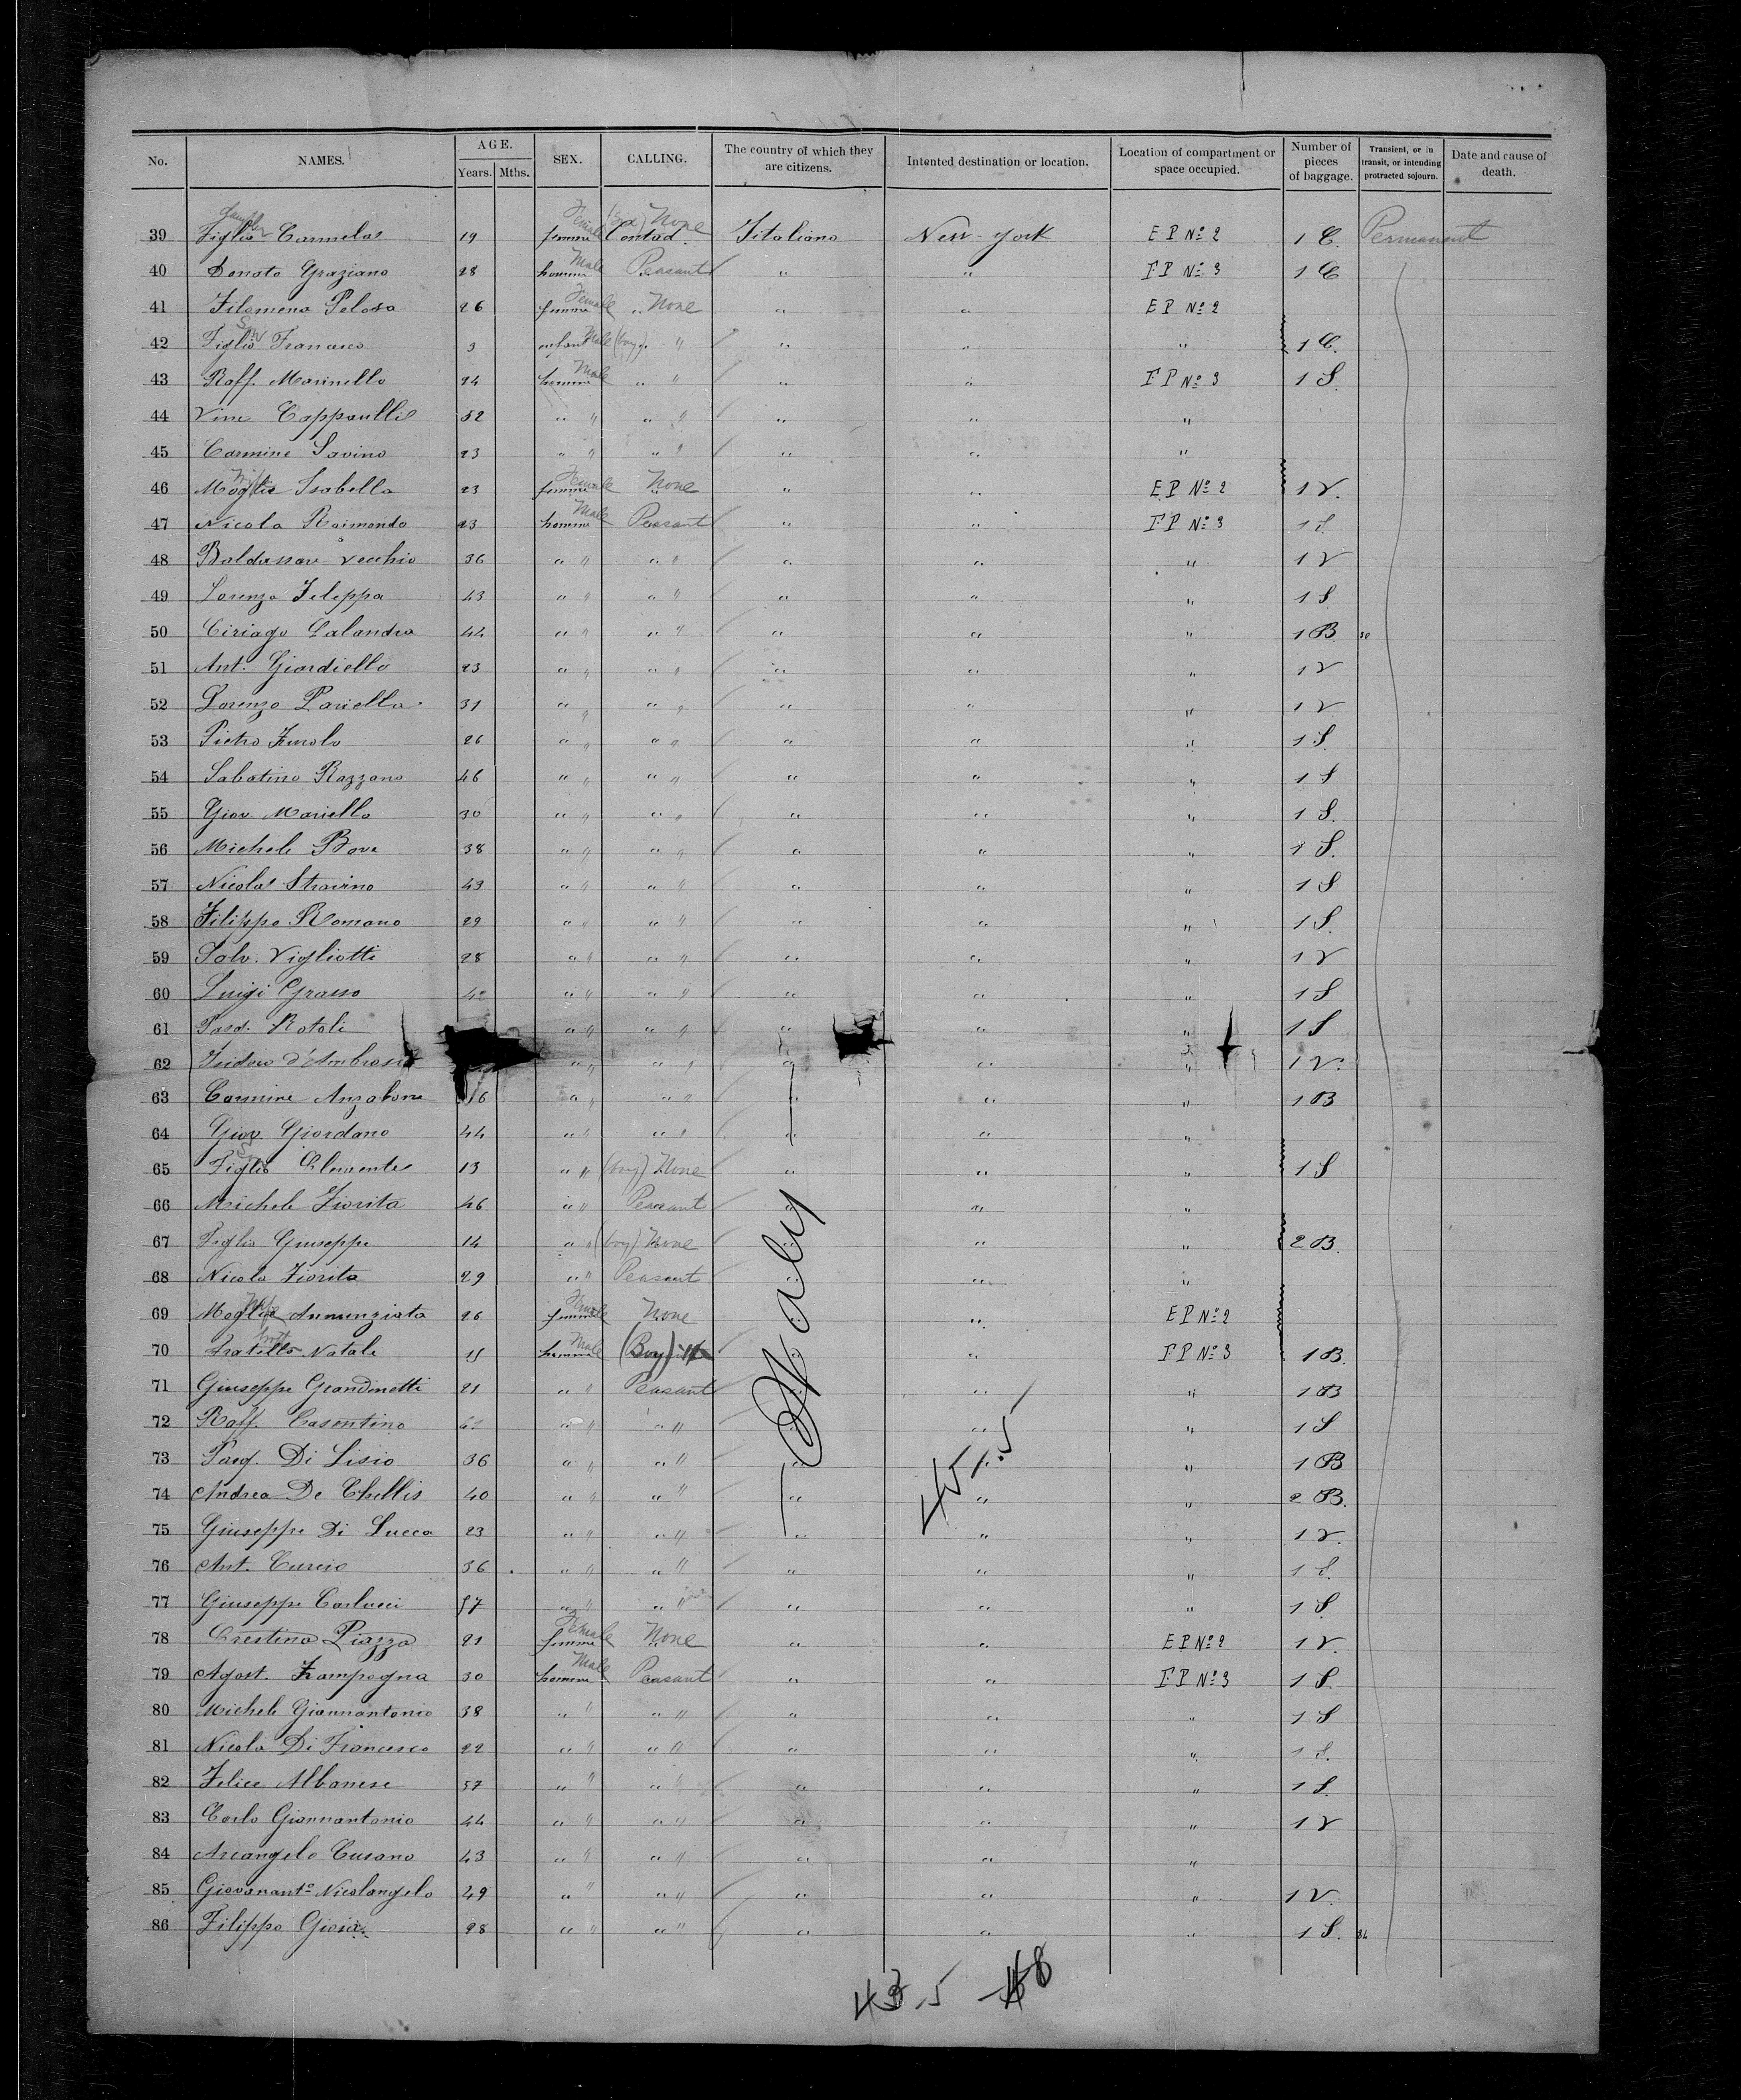 No. NAMES. AGE. Years. Mths. SEX. CALLING. The country of which they are citizens. Intented destination or location. Location of compartment or space occupied. Number of pieces of baggage. Transient, or in transit, or intending protracted sojourn. Date and cause of death.
39 Figlia Carmela 19 femme Female Contad. None Italiano New-York E P No 2 1 C. Permanent
40 Donato Graziano 28 homme Male Peasant " " F P No 3 1 C
41 Filomena Pelosa 26 femme Female " None " " E P No 2
42 Figlio Son Francesco 3 enfant Male (boy) " " " " " 1 C.
43 Raff. Marinello 24 homme Male " " " " F P No 3 1 S.
44 52 " " " " " " "
45 Carmine Savino 23 " " " " " " "
46 Moglie Wife Isabella 23 femme Female None " " E P No 2 1 V.
47 Nicola Raimondo 23 homme Male Peasant " " F P No 3 1 S.
48 Baldassare Vecchio 36 " " " " " " " 1 V
49 Lorenzo Felippa 43 " " " " " " " 1 S.
50 Ciriago Calandra 44 " " " " " " " 1 B 50
51 Ant. Giardiello 23 " " " " " " " 1 V
52 Lorenzo Pariella 31 " " " " " " " 1 V
53 Pietro 26 " " " " " " " 1 S.
54 Sabatino Razzano 46 " " " " " " " 1 S
55 Giov. Mariello 30 " " " " " " " 1 S.
56 Michele Bove 38 " " " " " " " 1 S.
57 Nicola Stravino 43 " " " " " " " 1 S
58 Filippo Romano 29 " " " " " " " 1 S.
59 Salv. Vigliotti 28 " " " " " " " 1 V
60 Luigi Grasso 42 " " " " " " " 1 S
61 Pasq. Rotoli " " " " " " " 1 S
62 Isidoro d'Ambrosio " " " " " " " 1 V.
63 Carmine Anzabone 6 " " " " " " " 1 B
64 Giov. Giordano 44 " " " " " " "
65 Figlio Son Clemente 13 " " (boy) None " " " 1 S
66 Michele Fiorita 46 " " Peasant " " "
67 Figlio Giuseppe 14 " " (boy) None " " " 2 B.
68 Nicola Fiorita 29 " " Peasant " " "
69 Moglie Wife Annunziata 26 femme Female None " E P No 2
70 Fratello Natale 15 homme Male (Boy) " " F P No 3 1 B.
71 Giuseppe Grandinetti 21 " " Peasant " " " 1 B
72 Raff. Casentino " " " " " " " 1 S
73 Pasq. Di Lisio 36 " " " " " " " 1 B
74 Andrea De Chellis 40 " " " " " " " 2 B.
75 Giuseppe Di Lucca 23 " " " " " " " 1 V.
76 Ant. Curcio 36 " " " " " " " 1 S.
77 Giuseppe Carlucci 57 " " " " " " " 1 S.
78 Crestina Piazza 21 femme Female None " " E P No 2 1 V.
79 Agost. Zampogna 30 homme Male Peasant " " F P No 3 1 S.
80 Michele Giannantonio 38 " " " " " " " 1 S
81 Nicola Di Francesco 22 " " " " " " " 1 S.
82 Felice Albanese 37 " " " " " " " 1 S.
83 Carlo Giannantonio 44 " " " " " " " 1 V
84 Arcangelo Cusano 43 " " " " " " "
85 Giovanant° Nicolangelo 49 " " " " " " " 1 V.
86 Filippo Gioia 28 " " " " " " " 1 S. 34
Italy
45.5
43.5